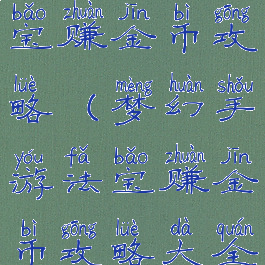 bǎo zhuàn jīn bì gōng
宝赚金币攻
lüè mèng huàn shǒu
略（梦幻手
yóu fǎ bǎo zhuàn jīn
游法宝赚金
bì gōng lüè dà quán
币攻略大全